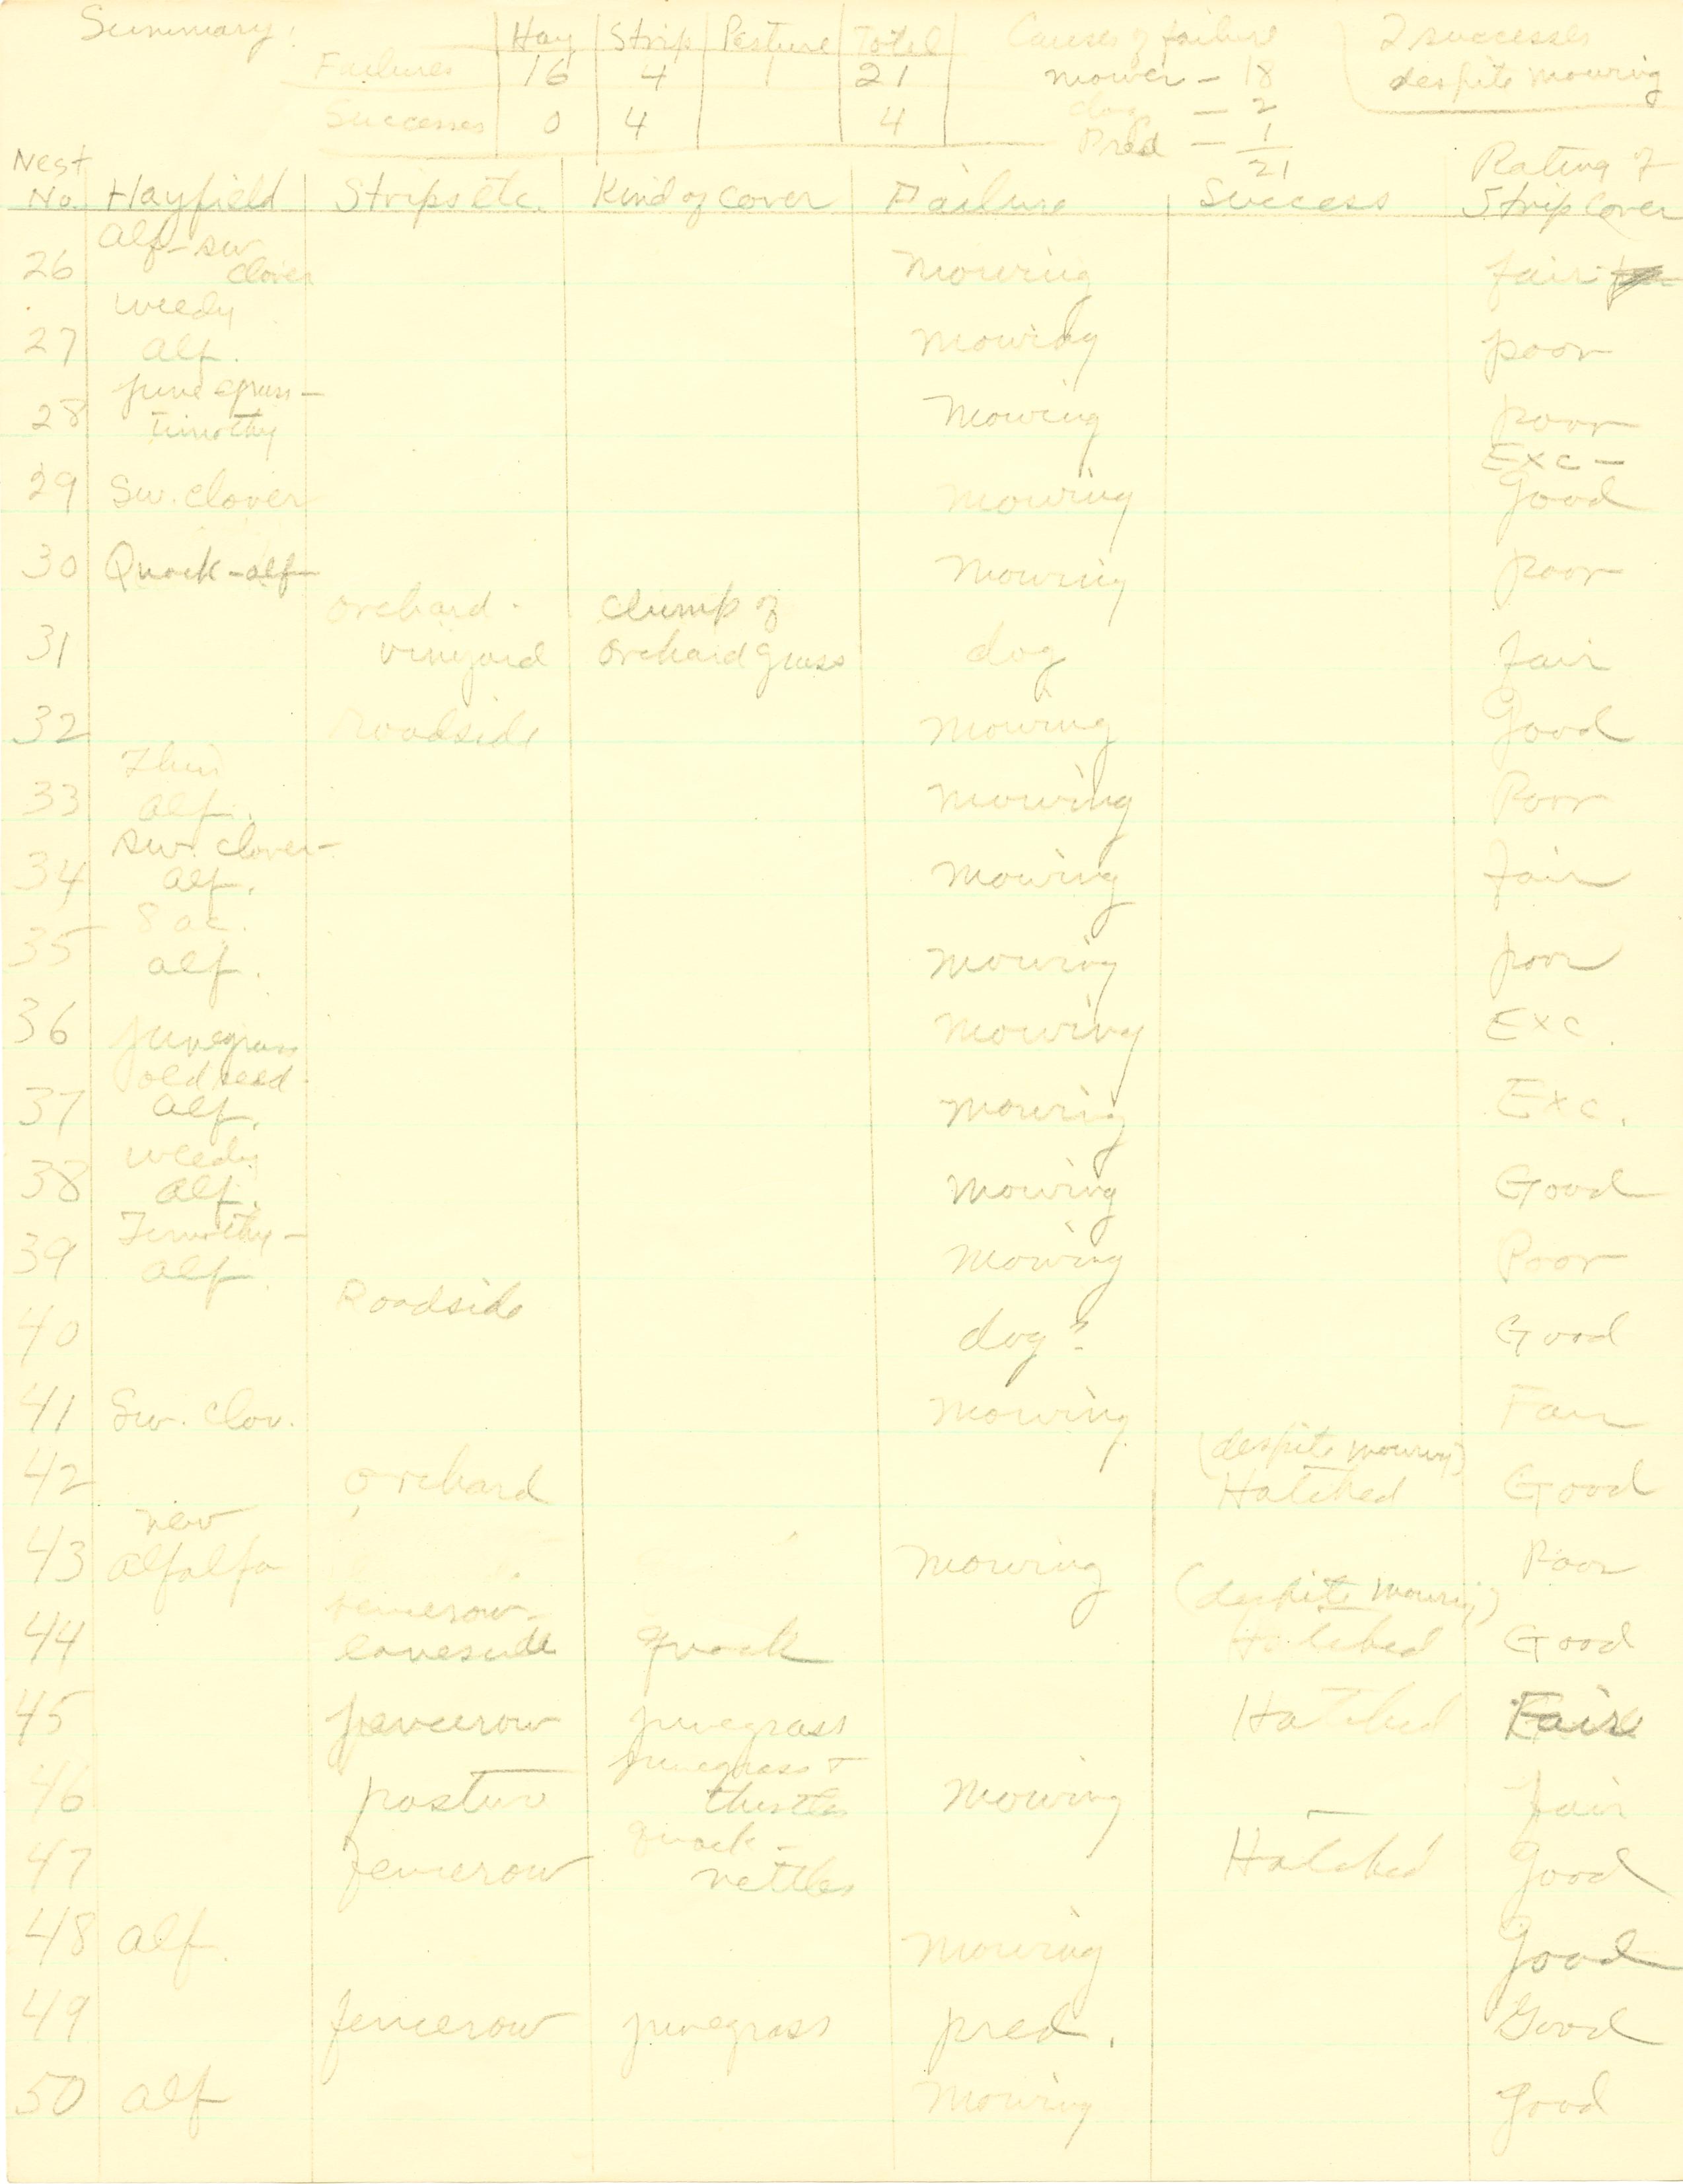 Summary:
Hay Strip Pasture Total
Failures 16 4 1 21
Successes 0 4 4
Causes of failure
mower - 18
dog - 2
Pred - 1
21
2 successes
despite mowing
Nest No. Hayfield Strips etc. Kind of cover Failure Success Rating of Strip Cover
26 Alf-sw clover Mowing fair
27 weedy alf. Mowing poor
28 June grass - Timothy Mowing poor
29 Sw. clover Mowing Exc - Good
30 Quack-alf Mowing poor
31 orchard - vinyard clump of orchard grass dog fair
32 Roadside Mowing Good
33 Thin alf. Mowing Poor
34 sw. clover - alf. Mowing fair
35 8 ac. alf. Mowing poor
36 Junegrass Mowing Exc.
37 old seed alf. Mowing Exc.
38 weedy alf. Mowing Good
39 Timothy - alf. Mowing Poor
40 Roadside dog? Good
41 Sw. clov. Mowing Fair
42 orchard (despite mowing) Hatched Good
43 new alfalfa Mowing Poor
44 fencerow - laneside quack (despite mowing) Hatched Good
45 fencerow junegrass Hatched Fair
46 pasture junegrass + thistles Mowing fair
47 fencerow quack - nettles Hatched Good
48 alf. Mowing Good
49 fencerow junegrass pred. Good
50 alf Mowing good